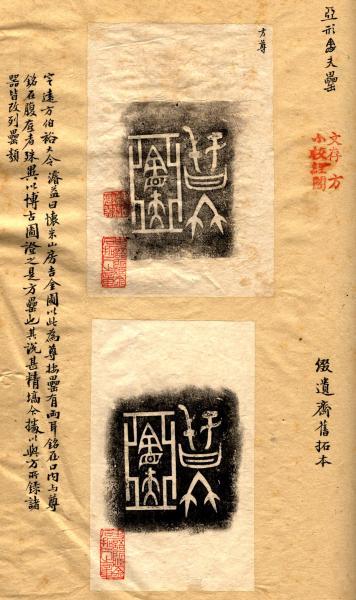 亞形夫罍
文存 方
小校經閣
綴遺齋舊拓本
方尊
定遠方伯裕大令濬益曰懷米山房吉金圖以此為尊按罍有兩耳銘在口內与尊
銘在腹底者殊異以博古圖證之是方罍也其說甚精塙今據以與方所錄諸
器皆改列罍類